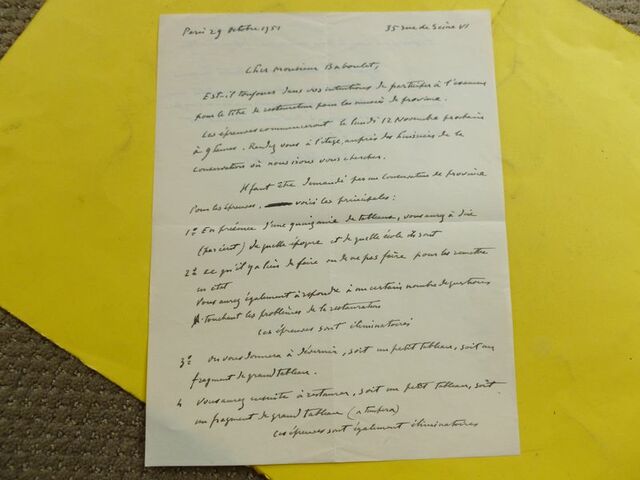 Paris 29 Octobre 1951 35 rue de Seine VI
Cher Monsieur Baboulet,
Est-il toujours dans vos intentions de participer à l'examen
pour le titre de restaurateur pour les musées de province.
Les épreuves commenceront le lundi 12 Novembre prochain
à 9 heures. Rendez vous à l'étage, auprès des huissiers de la
Conservation où nous irons vous chercher.
Il faut être demandé par un Conservateur de province
Pour les épreuves, voici les principales :
1º En présence d'une quinzaine de tableaux, vous aurez à dire
(par écrit) de quelle époque et de quelle école ils sont
2º ce qu'il y a lieu de faire ou de ne pas faire pour les remettre
en état
Vous aurez également à répondre à un certain nombre de questions
touchant les problèmes de la restauration
Ces épreuves sont éliminatoires
3º on vous donnera à dévernir, soit un petit tableau, soit un
fragment de grand tableau.
4 Vous aurez ensuite à restaurer, soit un petit tableau, soit
un fragment de grand tableau (a tempera)
Ces épreuves sont également éliminatoires